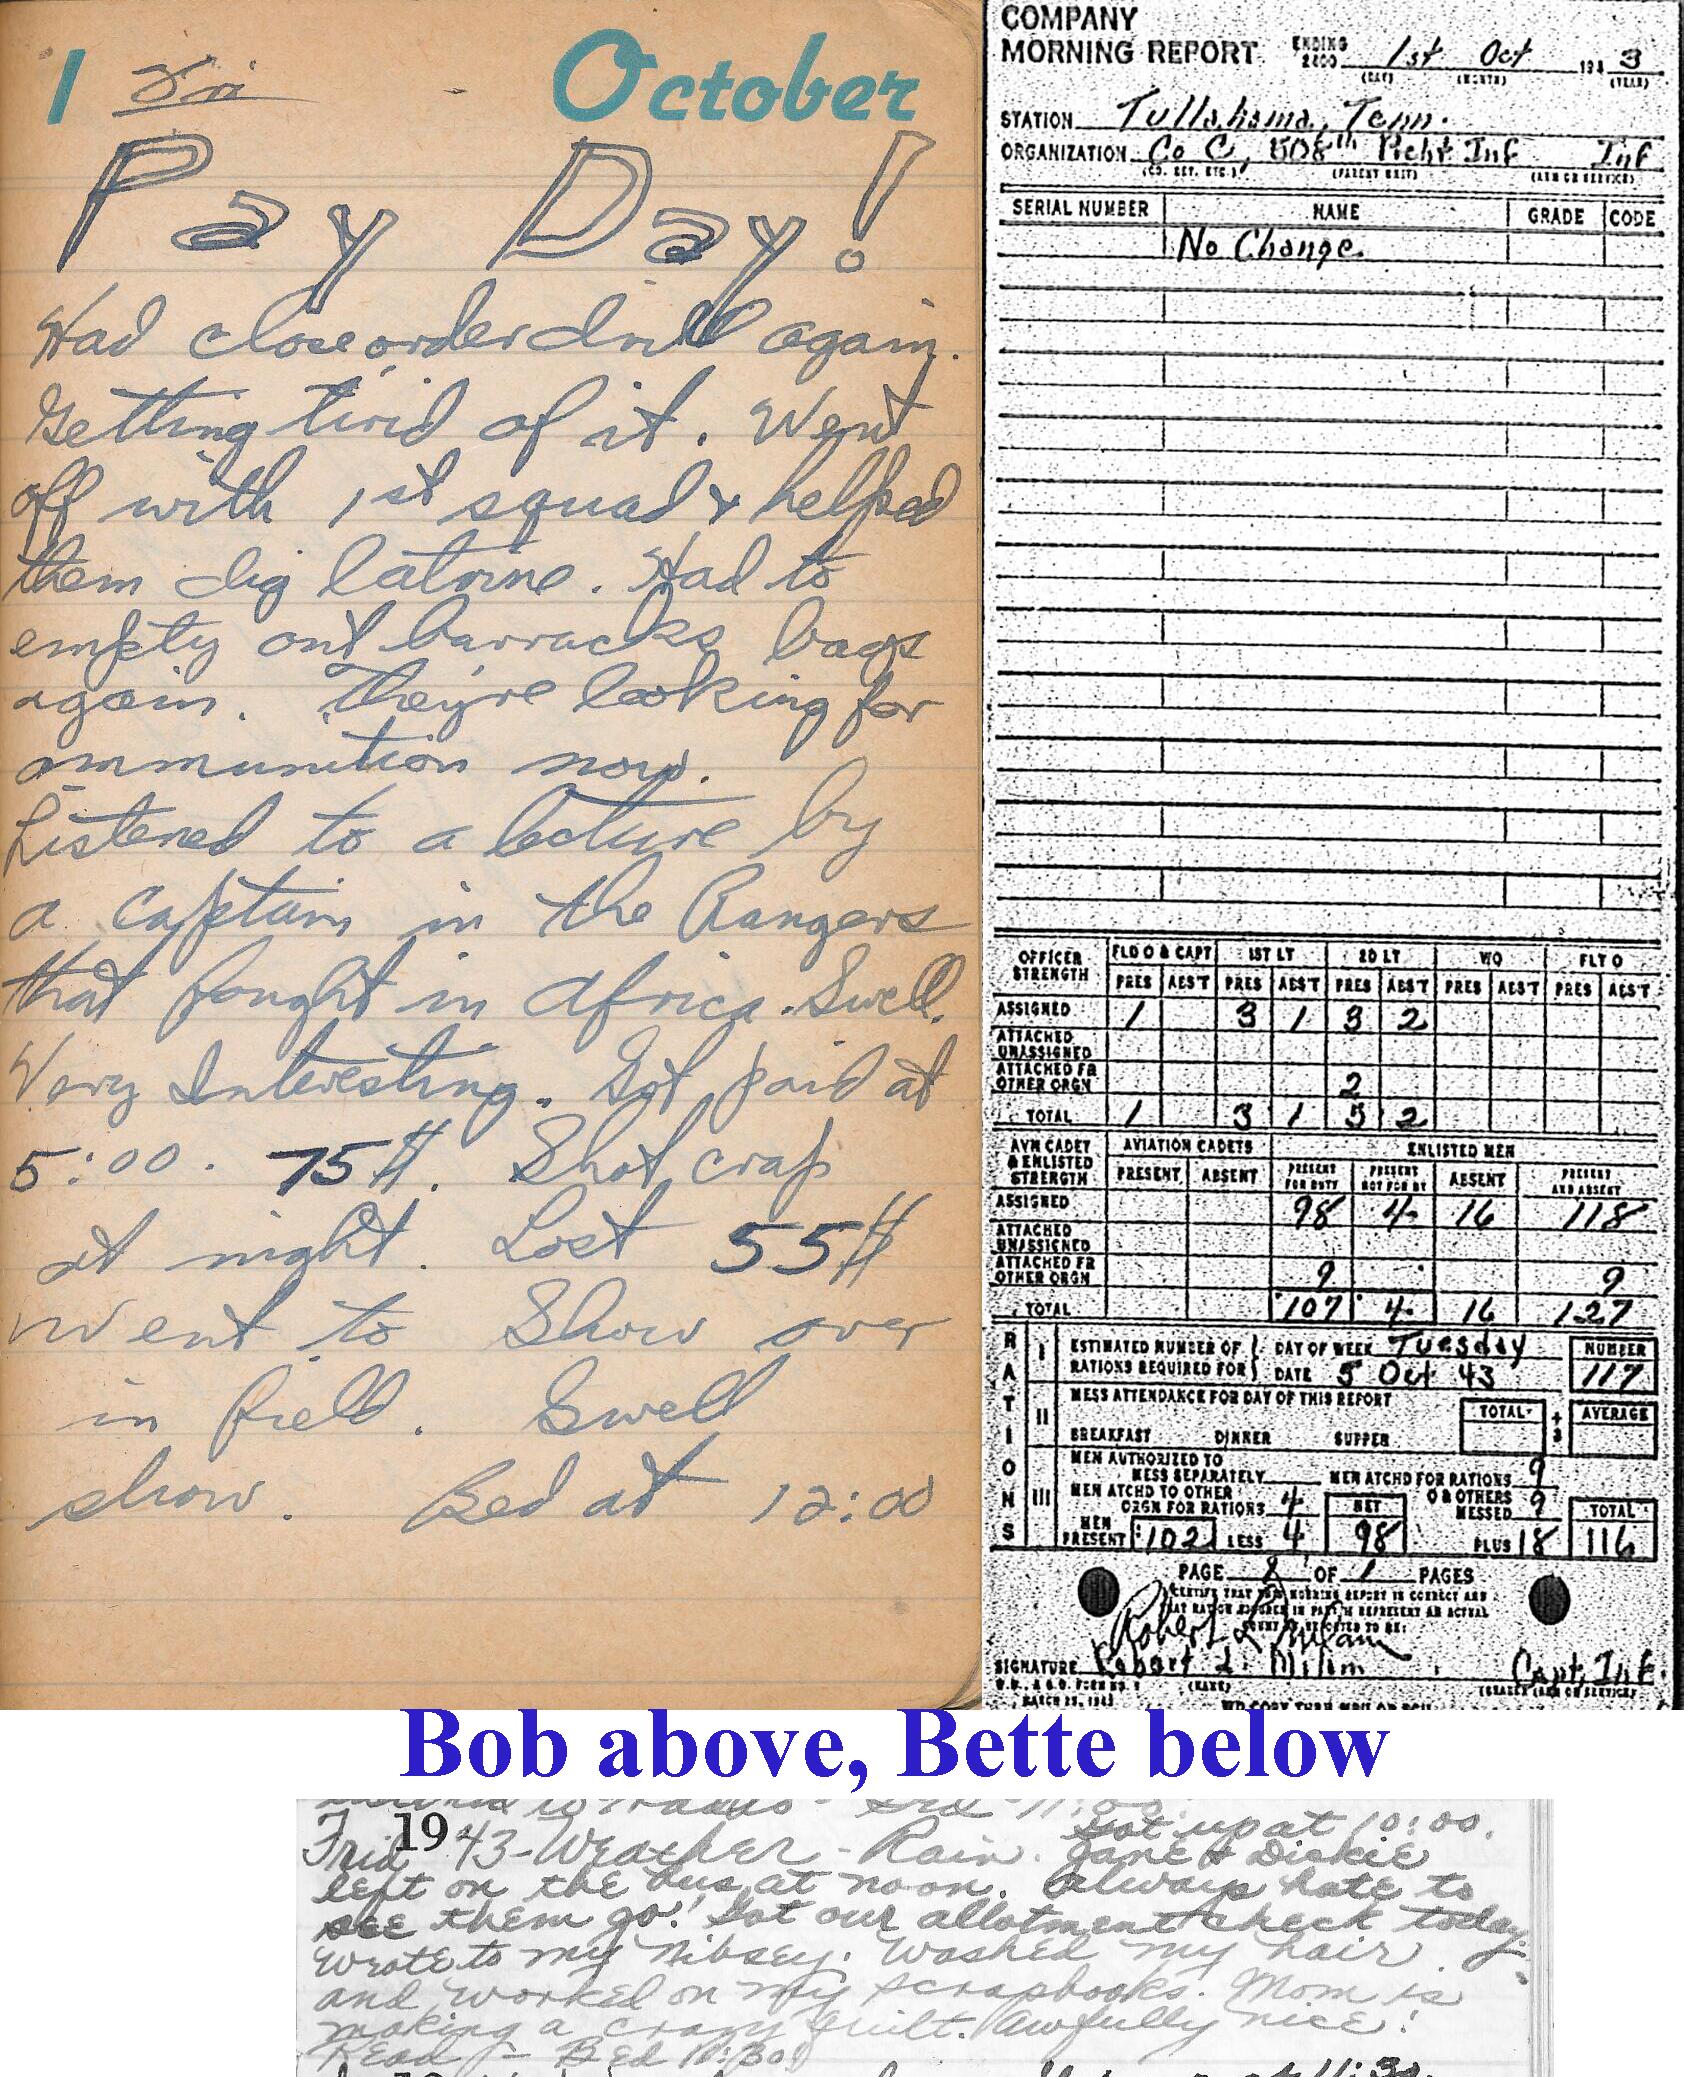 1 Fri October
Pay Day!
Had close order drill again.
Getting tired of it. Went
off with 1st squad & helped
them dig latrine. Had to
empty out barracks bags
again. They're looking for
ammunition now.
Listened to a lecture by
a Captain in the Rangers
that fought in Africa. Swell.
Very Interesting. Got paid at
5:00. 75$. Shot crap
at night. Lost 55$
Went to Show over
in field. Swell
show. Bed at 12:00
COMPANY
MORNING REPORT ENDING 2400 1st Oct 1943
(DAY) (MONTH) (YEAR)
STATION Tullahama, Tenn.
ORGANIZATION Co C, 508th Pcht Inf Inf
(CO. DET. ETC.) (PARENT UNIT) (ARM OR SERVICE)
SERIAL NUMBER NAME GRADE CODE
No Change
OFFICER STRENGTH FLD O & CAPT 1ST LT 2D LT WO FLT O
PRES ABS'T PRES ABS'T PRES ABS'T PRES ABS'T PRES ABS'T
ASSIGNED 1 3 1 3 2
ATTACHED UNASSIGNED
ATTACHED FR OTHER ORGN 2
TOTAL 1 3 1 5 2
AVN CADET & ENLISTED STRENGTH AVIATION CADETS ENLISTED MEN
PRESENT ABSENT PRESENT FOR DUTY PRESENT NOT FOR DY ABSENT PRESENT AND ABSENT
ASSIGNED 98 4 16 118
ATTACHED UNASSIGNED
ATTACHED FR OTHER ORGN 9 9
TOTAL 107 4 16 127
RATIONS
I ESTIMATED NUMBER OF RATIONS REQUIRED FOR DAY OF WEEK Tuesday NUMBER
DATE 5 Oct 43 117
II MESS ATTENDANCE FOR DAY OF THIS REPORT
TOTAL ÷ 3 AVERAGE
BREAKFAST DINNER SUPPER
III MEN AUTHORIZED TO MESS SEPARATELY MEN ATCHD FOR RATIONS 9
MEN ATCHD TO OTHER ORGN FOR RATIONS 4 NET OTHERS MESSED 9 TOTAL
MEN PRESENT 102 LESS 4 98 PLUS 18 116
PAGE 1 OF 1 PAGES
I CERTIFY THAT THIS MORNING REPORT IS CORRECT AND
Robert L. Milam
SIGNATURE Robert L. Milam Capt, Inf.
(NAME) (GRADE) (ARM OR SERVICE)
MARCH 23, 1943
Bob above, Bette below
Frid 1943 - Weather - Rain. Got up at 10:00.
Jane & Dickie
left on the bus at noon. Always hate to
see them go! Got our allotment check today.
Wrote to my Nibsey. Washed my hair
and worked on my scrapbooks. Mom is
making a crazy quilt. Awfully nice!
Read - Bed 10:30!